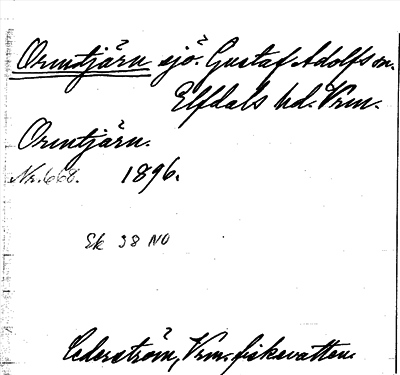 Ormtjärn sjö. Gustaf Adolfs sn.
Elfdals hd. Vrm.
Ormtjärn.
Nr. 668. 1896.
Ek 38 NO
Cederström, Vrm. fiskevatten.